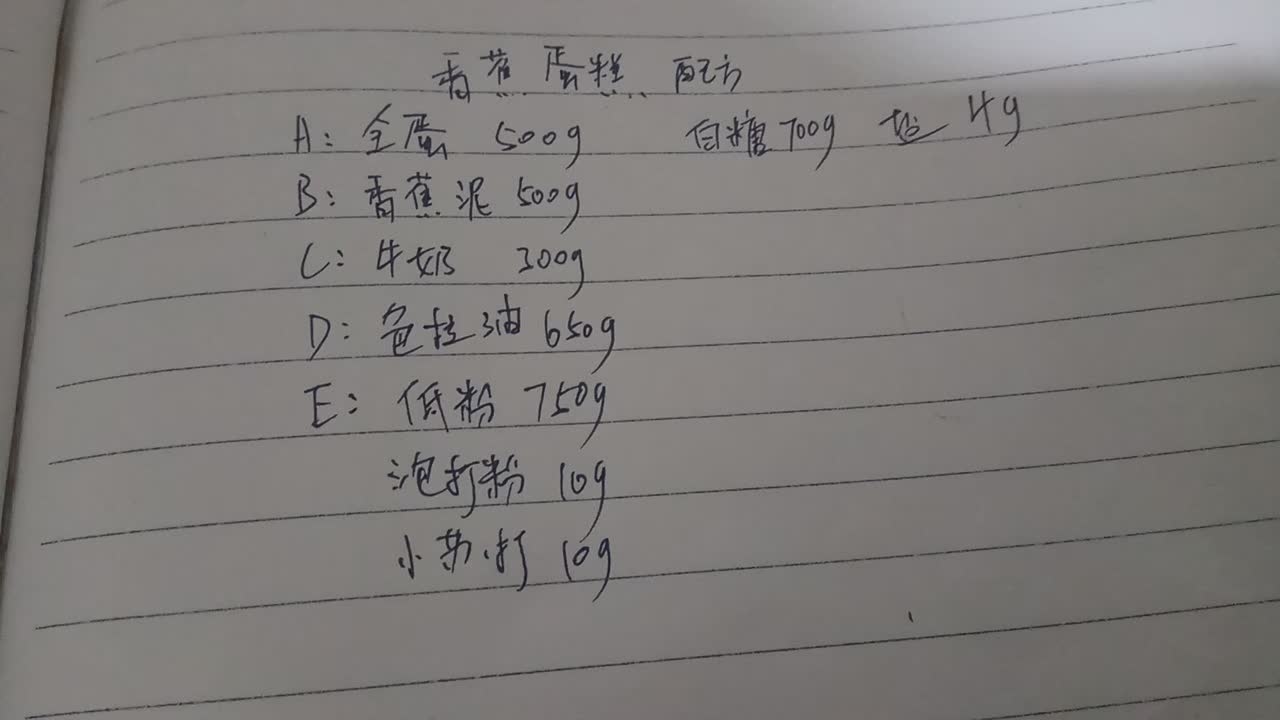 香蕉蛋糕 配方
A: 全蛋 500g 白糖700g 盐 4g
B: 香蕉泥 500g
C: 牛奶 300g
D: 色拉油 650g
E: 低粉 750g
泡打粉 10g
小苏打 10g